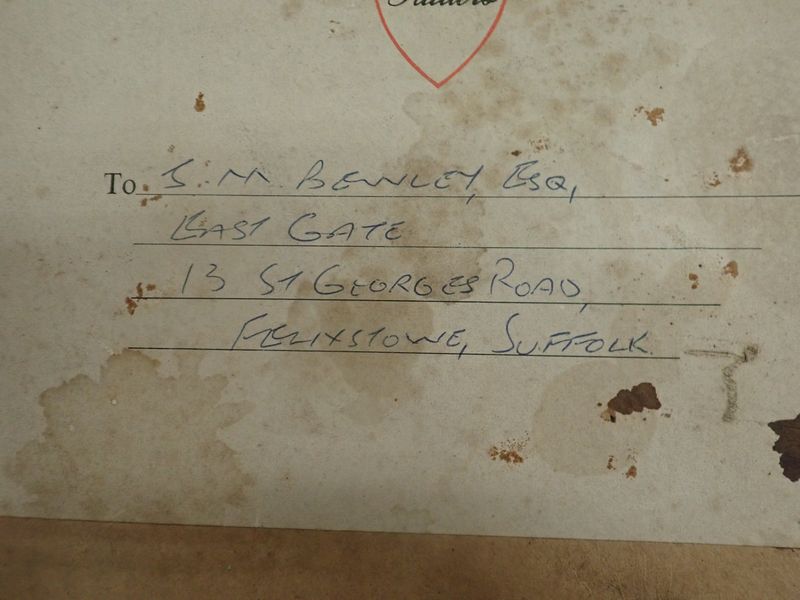 To S. M. BEWLEY, ESQ,
EAST GATE
13 ST GEORGES ROAD,
FELIXSTOWE, SUFFOLK